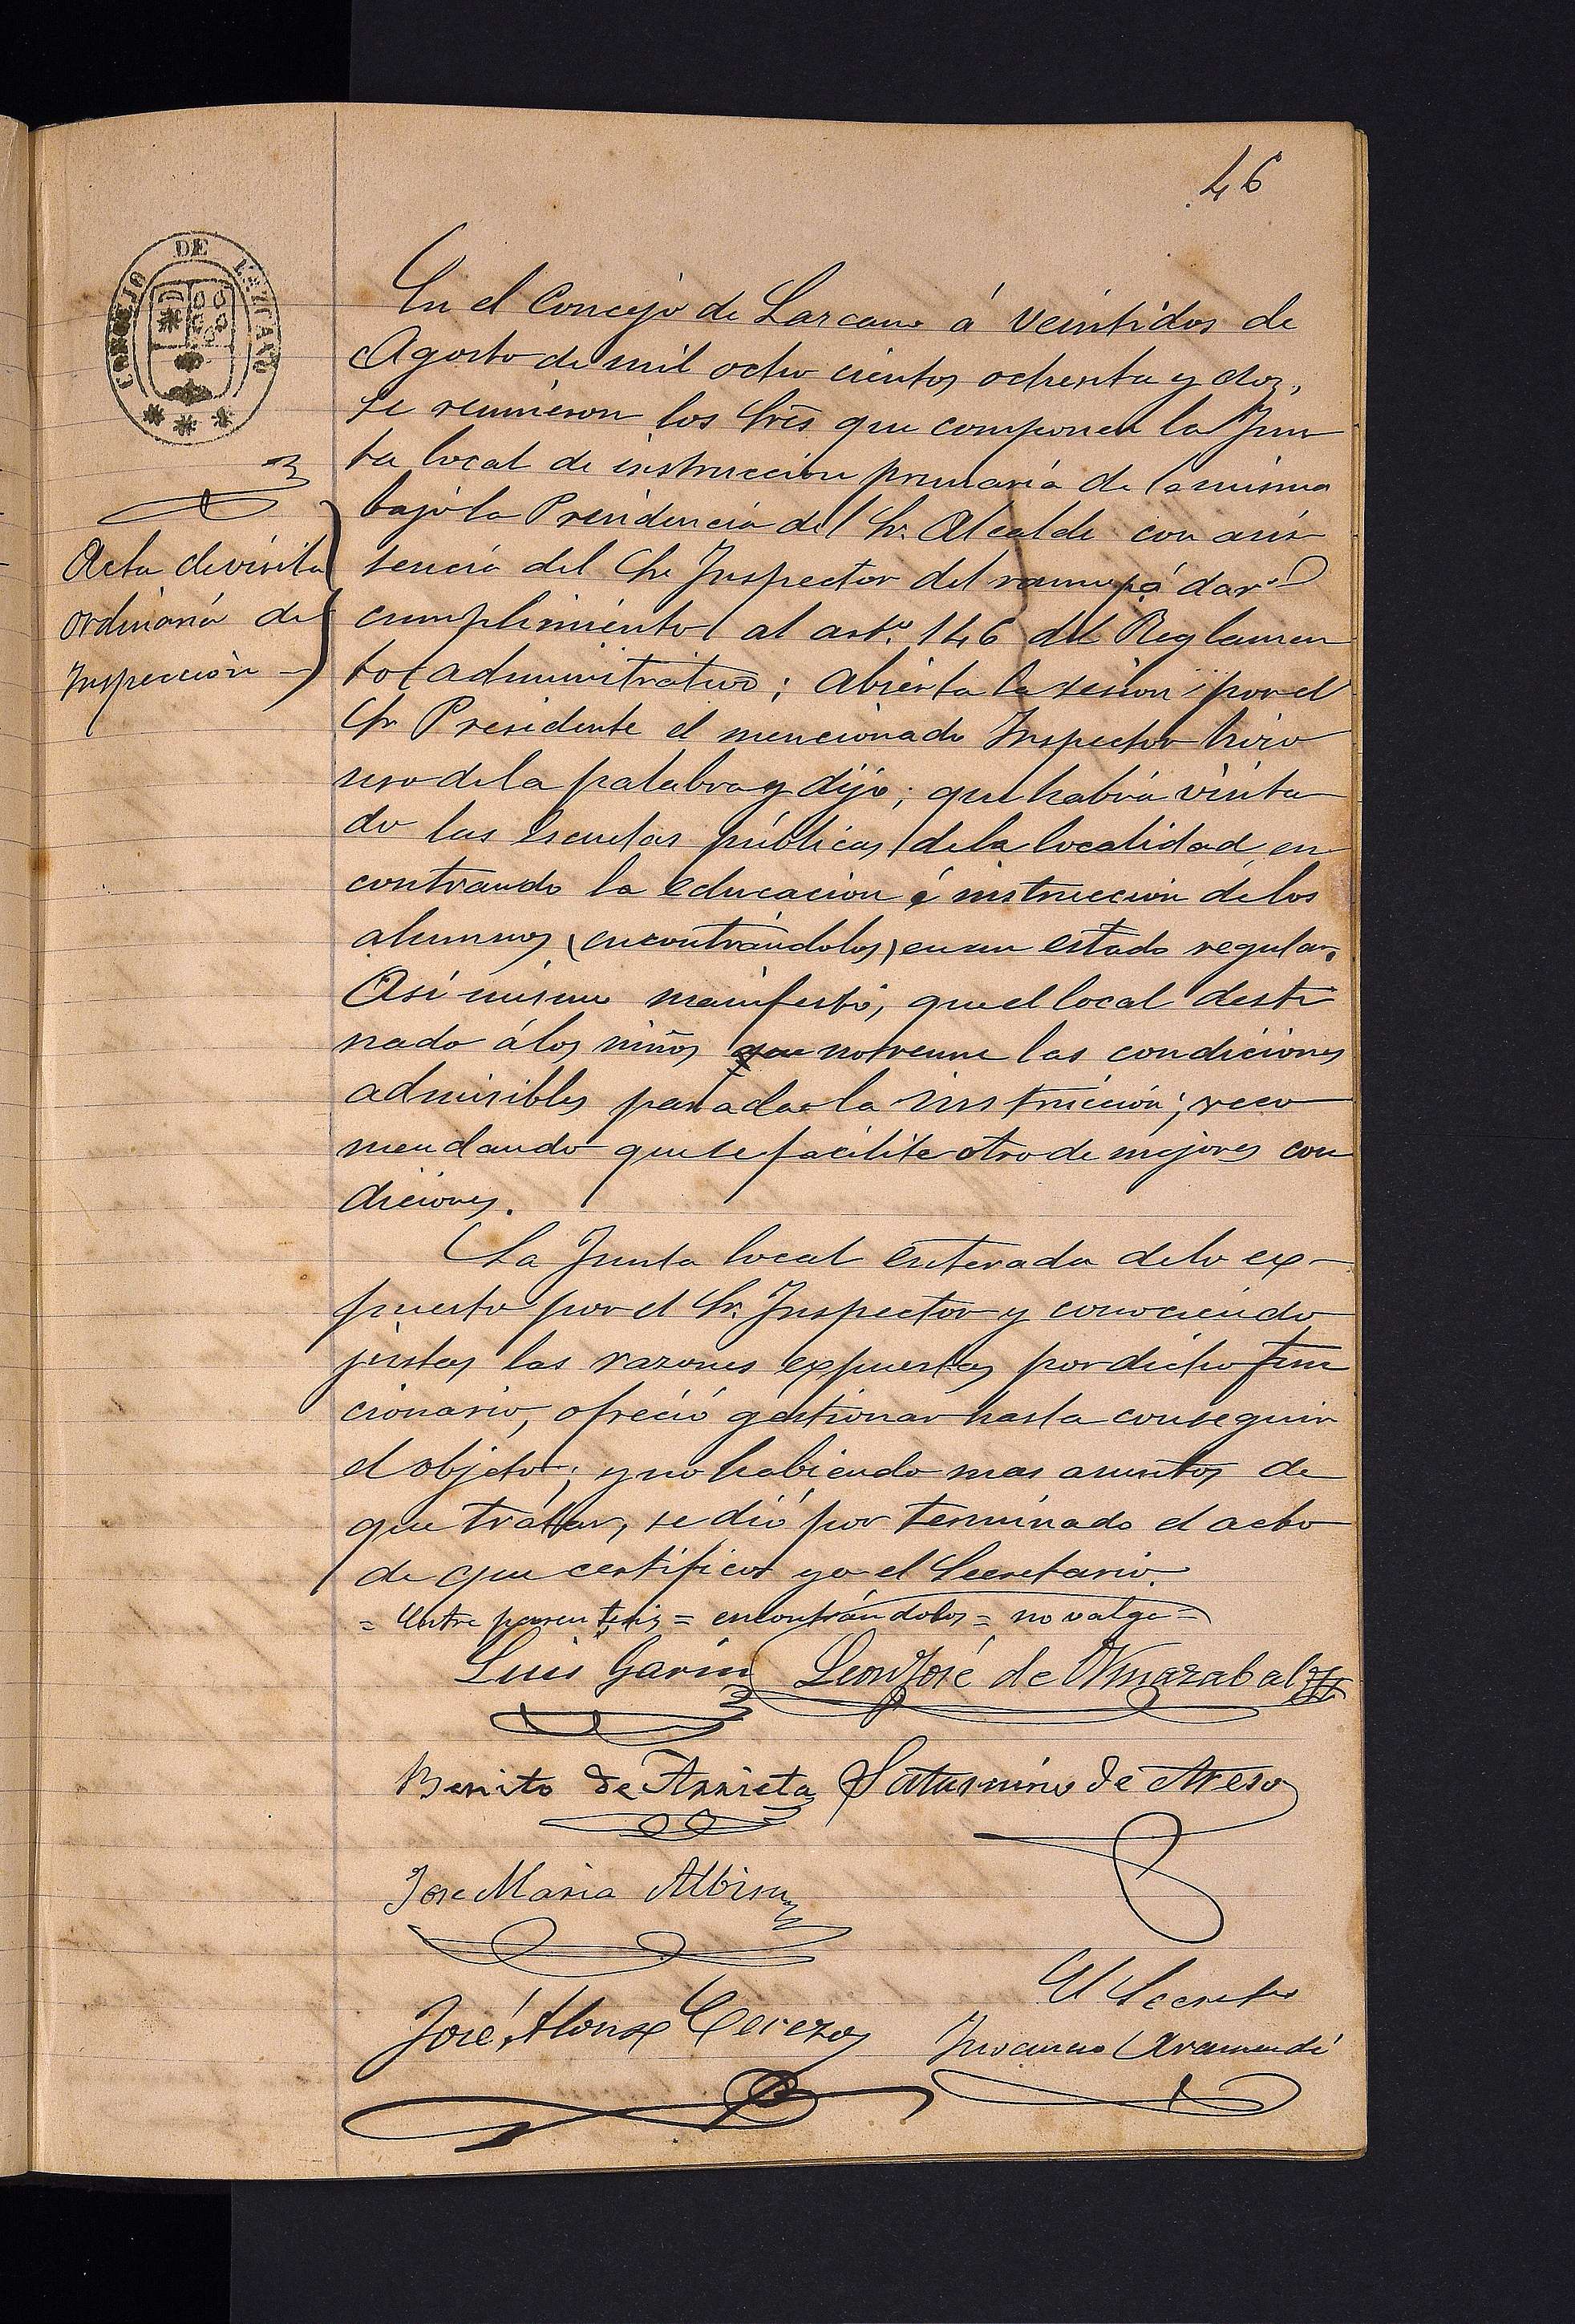 46
CONCEJO DE LAZCANO
Acta de visita
ordinaria de
Inspección
En el Concejo de Lazcano á veintidos de
Agosto de mil ocho cientos ochenta y dos,
se reunieron los Sres que componen la Jun
ta local de instruccion primaria de la misma
bajo la Presidencia del Sr. Alcalde con asis
tencia del Sr Inspector del ramo pá dar
cumplimiento al artº. 146 del Reglamen
to administrativo; abierta la sesion por el
Sr Presidente el mencionado Inspector hizo
uso de la palabra y dijo; que habia visita
do las escuelas públicas de la localidad, en
contrando la educacion é instruccion de los
alumnos (encontrándolos) en un estado regular.
Así mismo manifestó, que el local desti
nado á los niños que no reune las condiciones
admisibles para dar la instrucción; reco
mendando que se facilite otro de mejores con
diciones.
La Junta local enterada de lo ex-
puesto por el Sr. Inspector y conociendo
justas las razones expuestas por dicho fun
cionario, ofreció gestionar hasta conseguir
el objeto; y no habiendo mas asuntos de
que tratar, se dió por terminado el acto
de que certifico yo el Secretario.
= Entre parentesis = encontrándolos = no valga =
Luis Garin Leon José de Urmazabal
Benito de Arrieta Saturnino de Areso
Jose Maria Albisu
El Secreto
José Alonso Cerezo Aramendi